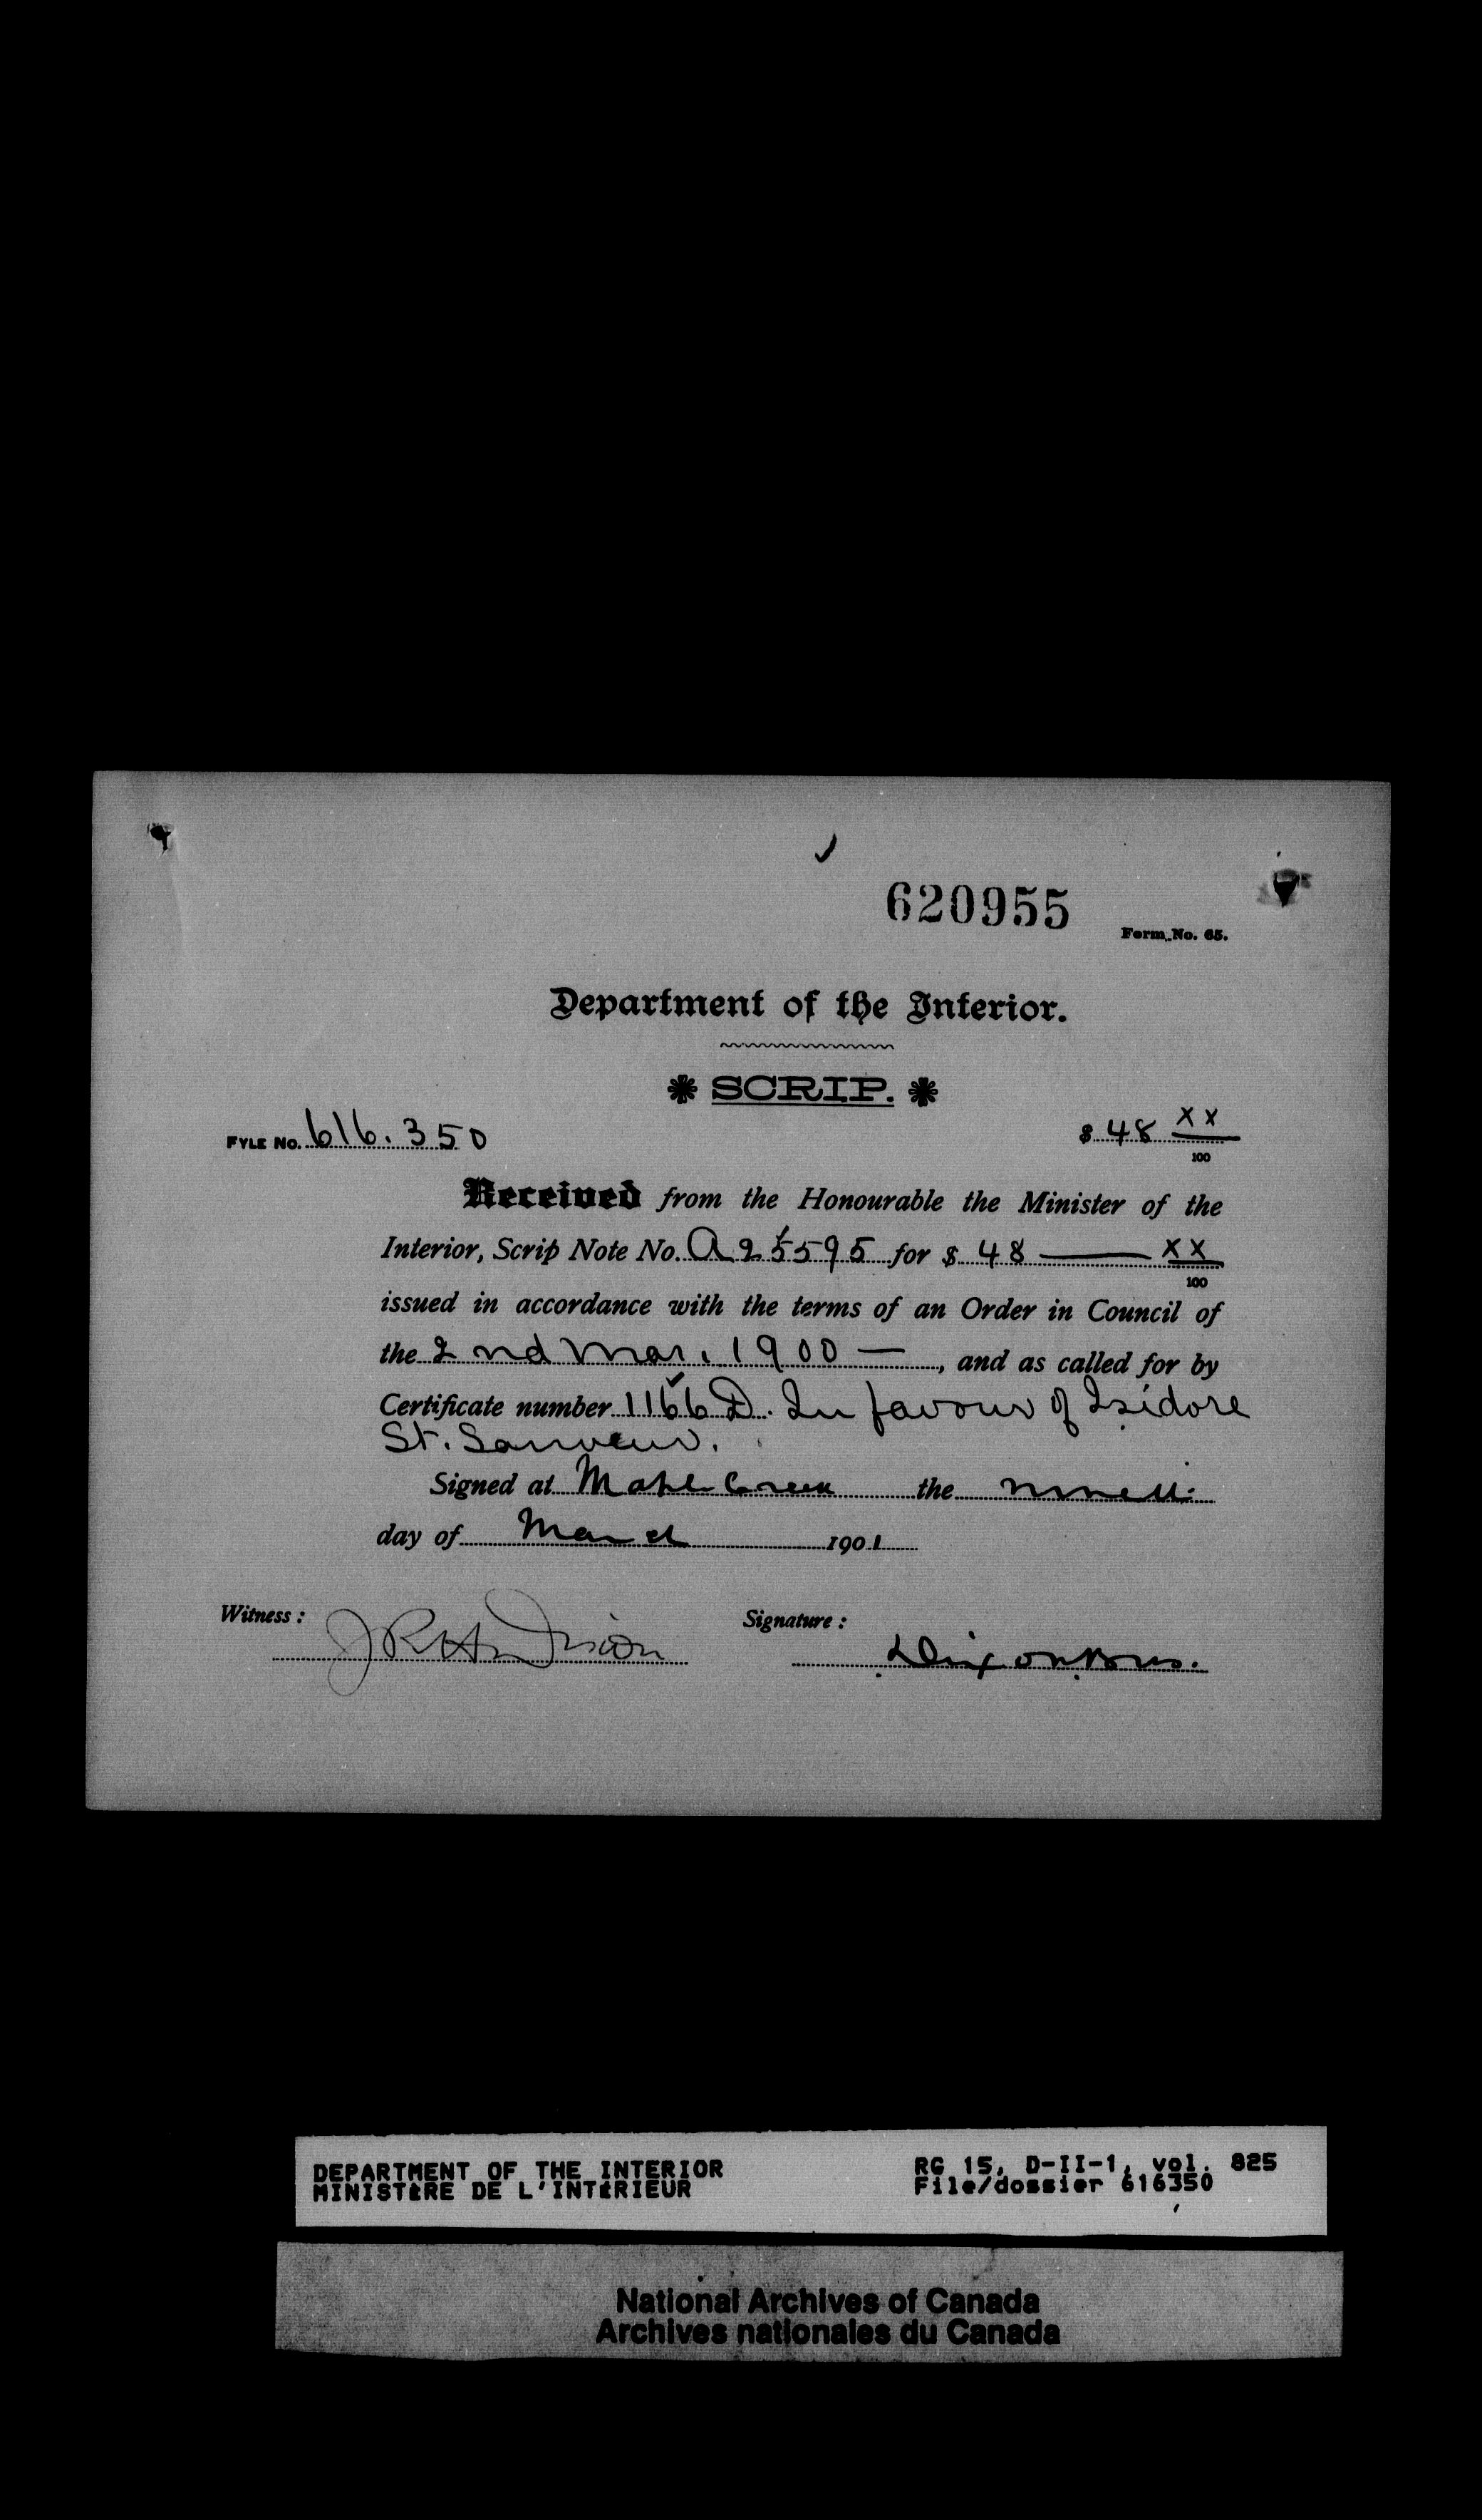 620955
Form No. 65.
Department of the Interior.
SCRIP.
FYLE No. 616.350 $ 48 XX/100
Received from the Honourable the Minister of the
Interior, Scrip Note No. A 25595 for $ 48 — XX/100
issued in accordance with the terms of an Order in Council of
the 2nd Mar. 1900 —, and as called for by
Certificate number 1166 D. In favour of Isidore
St. Sauveur.
Signed at Maple Creek the
day of March 1901
Witness: Signature:
Dixon Bros.
DEPARTMENT OF THE INTERIOR RG 15, D-II-1, vol. 825
MINISTÈRE DE L'INTÉRIEUR File/dossier 616350
National Archives of Canada
Archives nationales du Canada